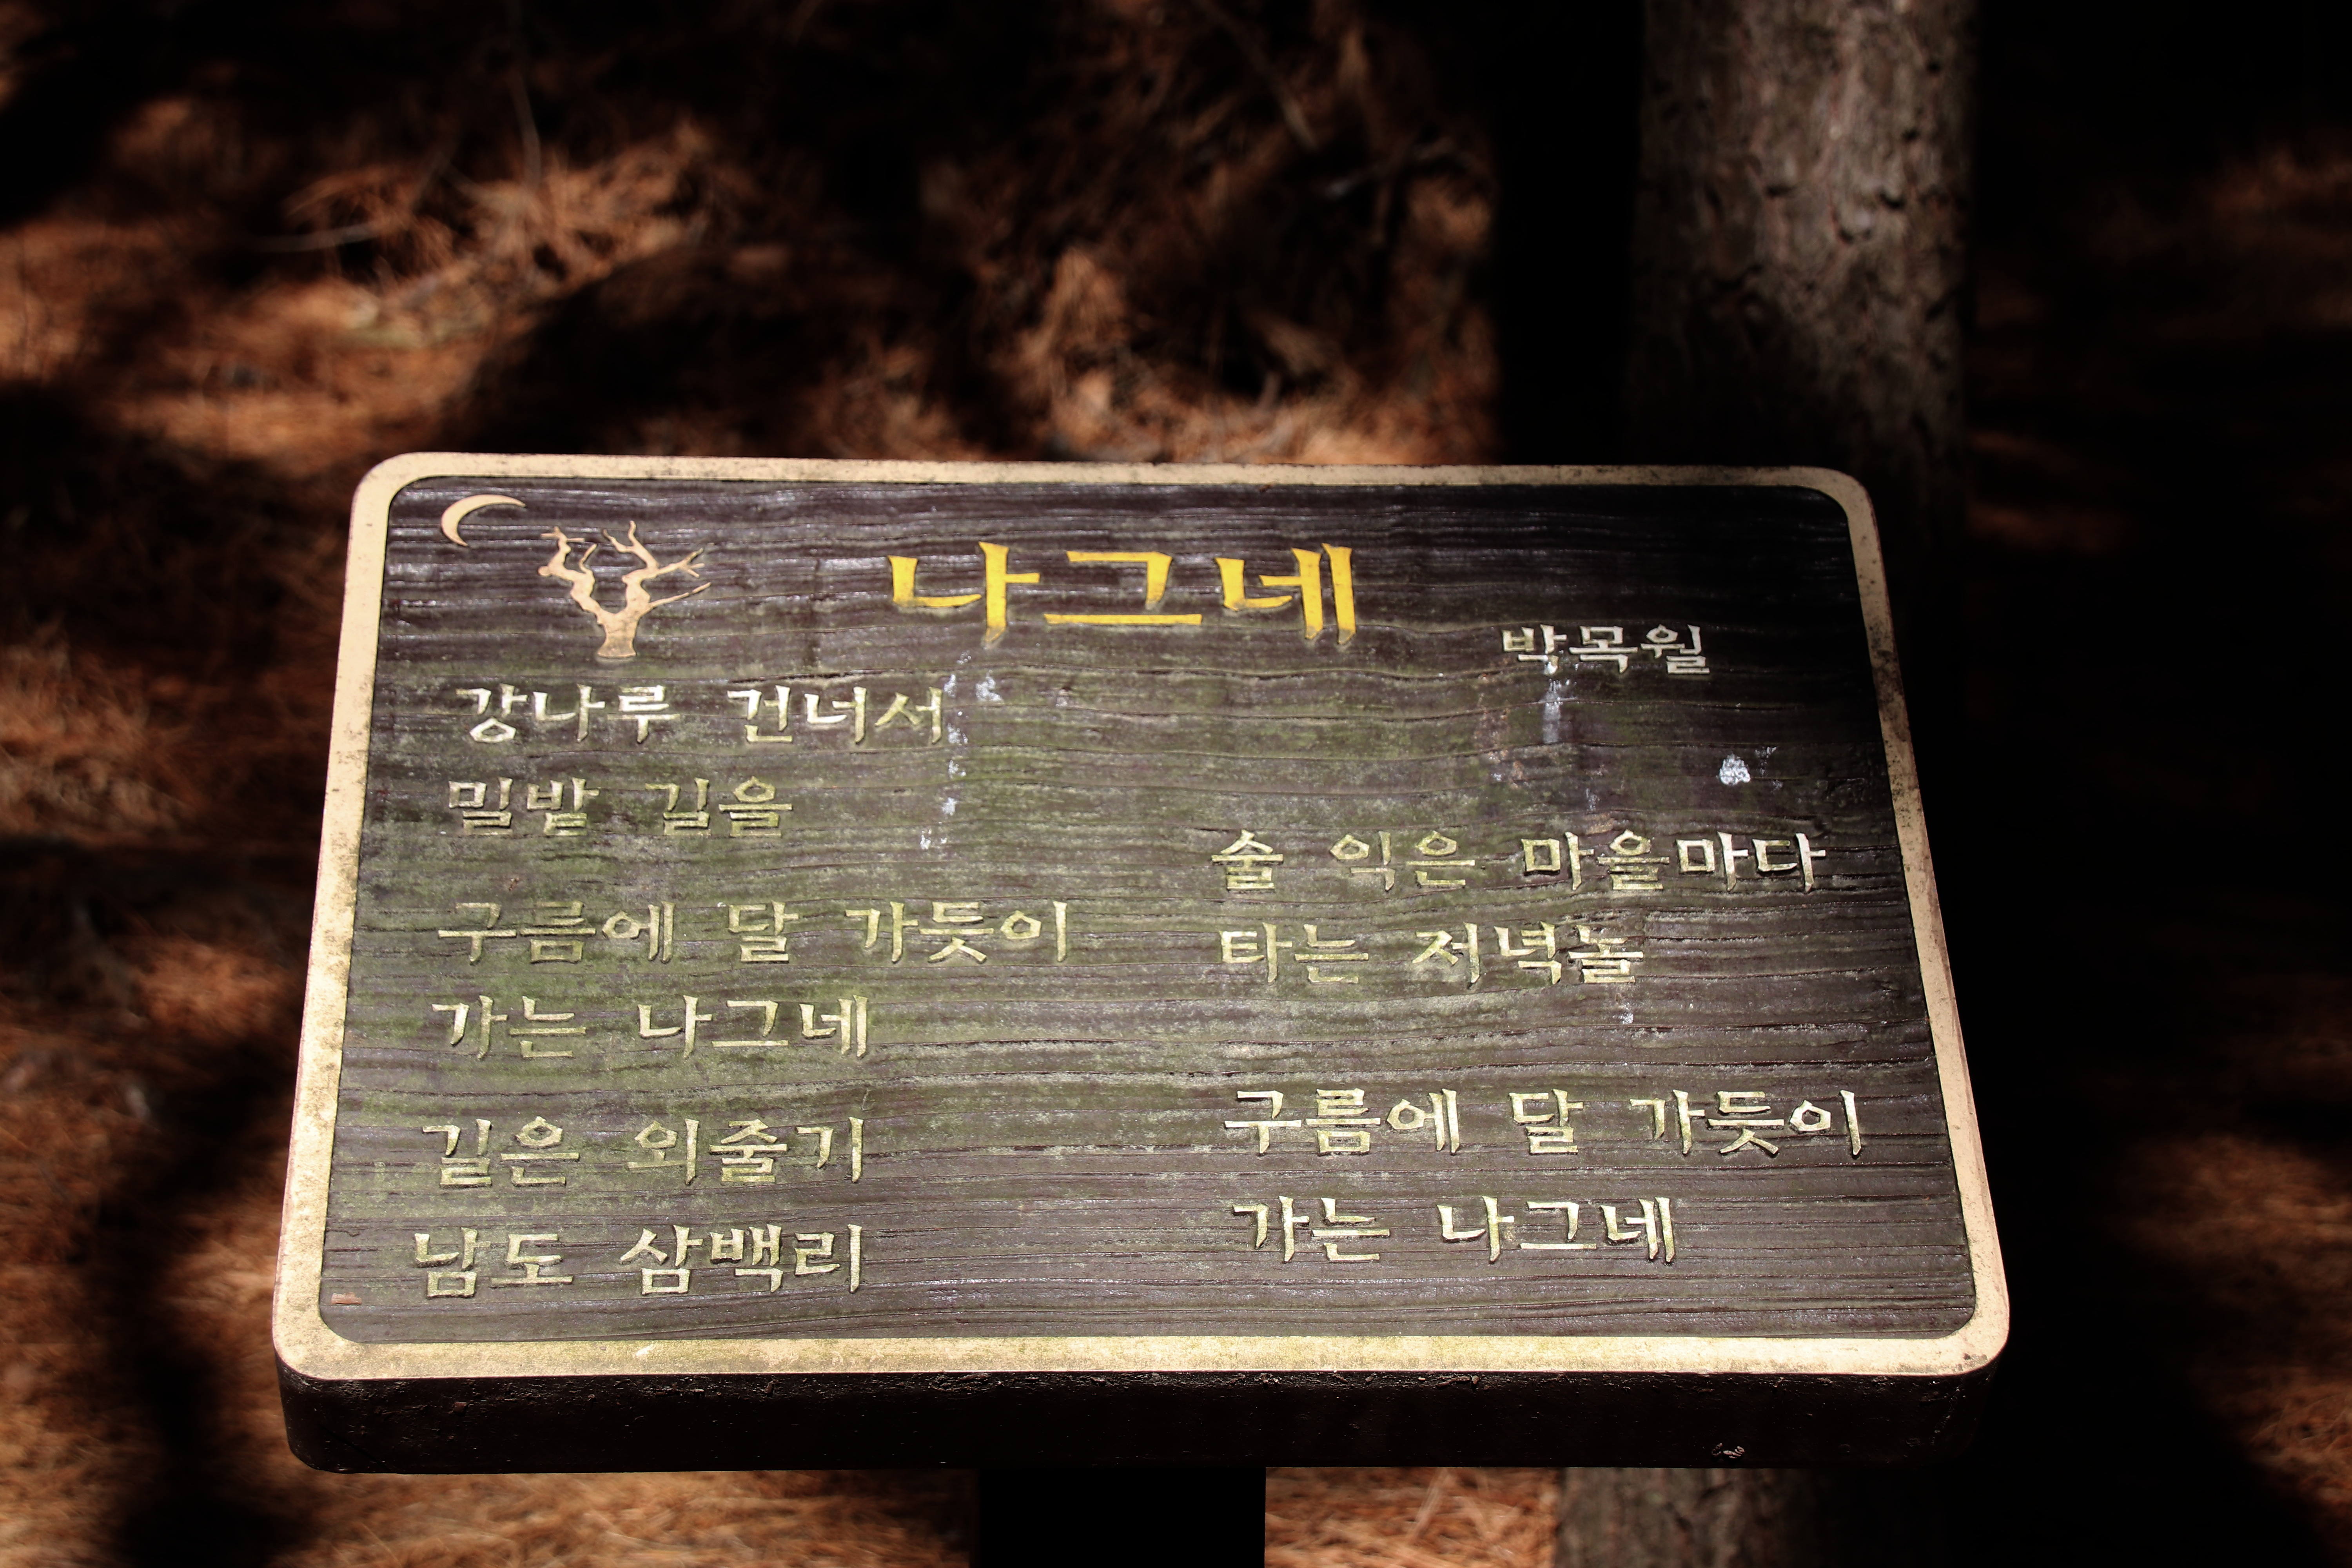 나그네
박목월
강나루 건너서
밀밭 길을
구름에 달 가듯이
가는 나그네
길은 외줄기
남도 삼백리
술 익은 마을마다
타는 저녁놀
구름에 달 가듯이
가는 나그네